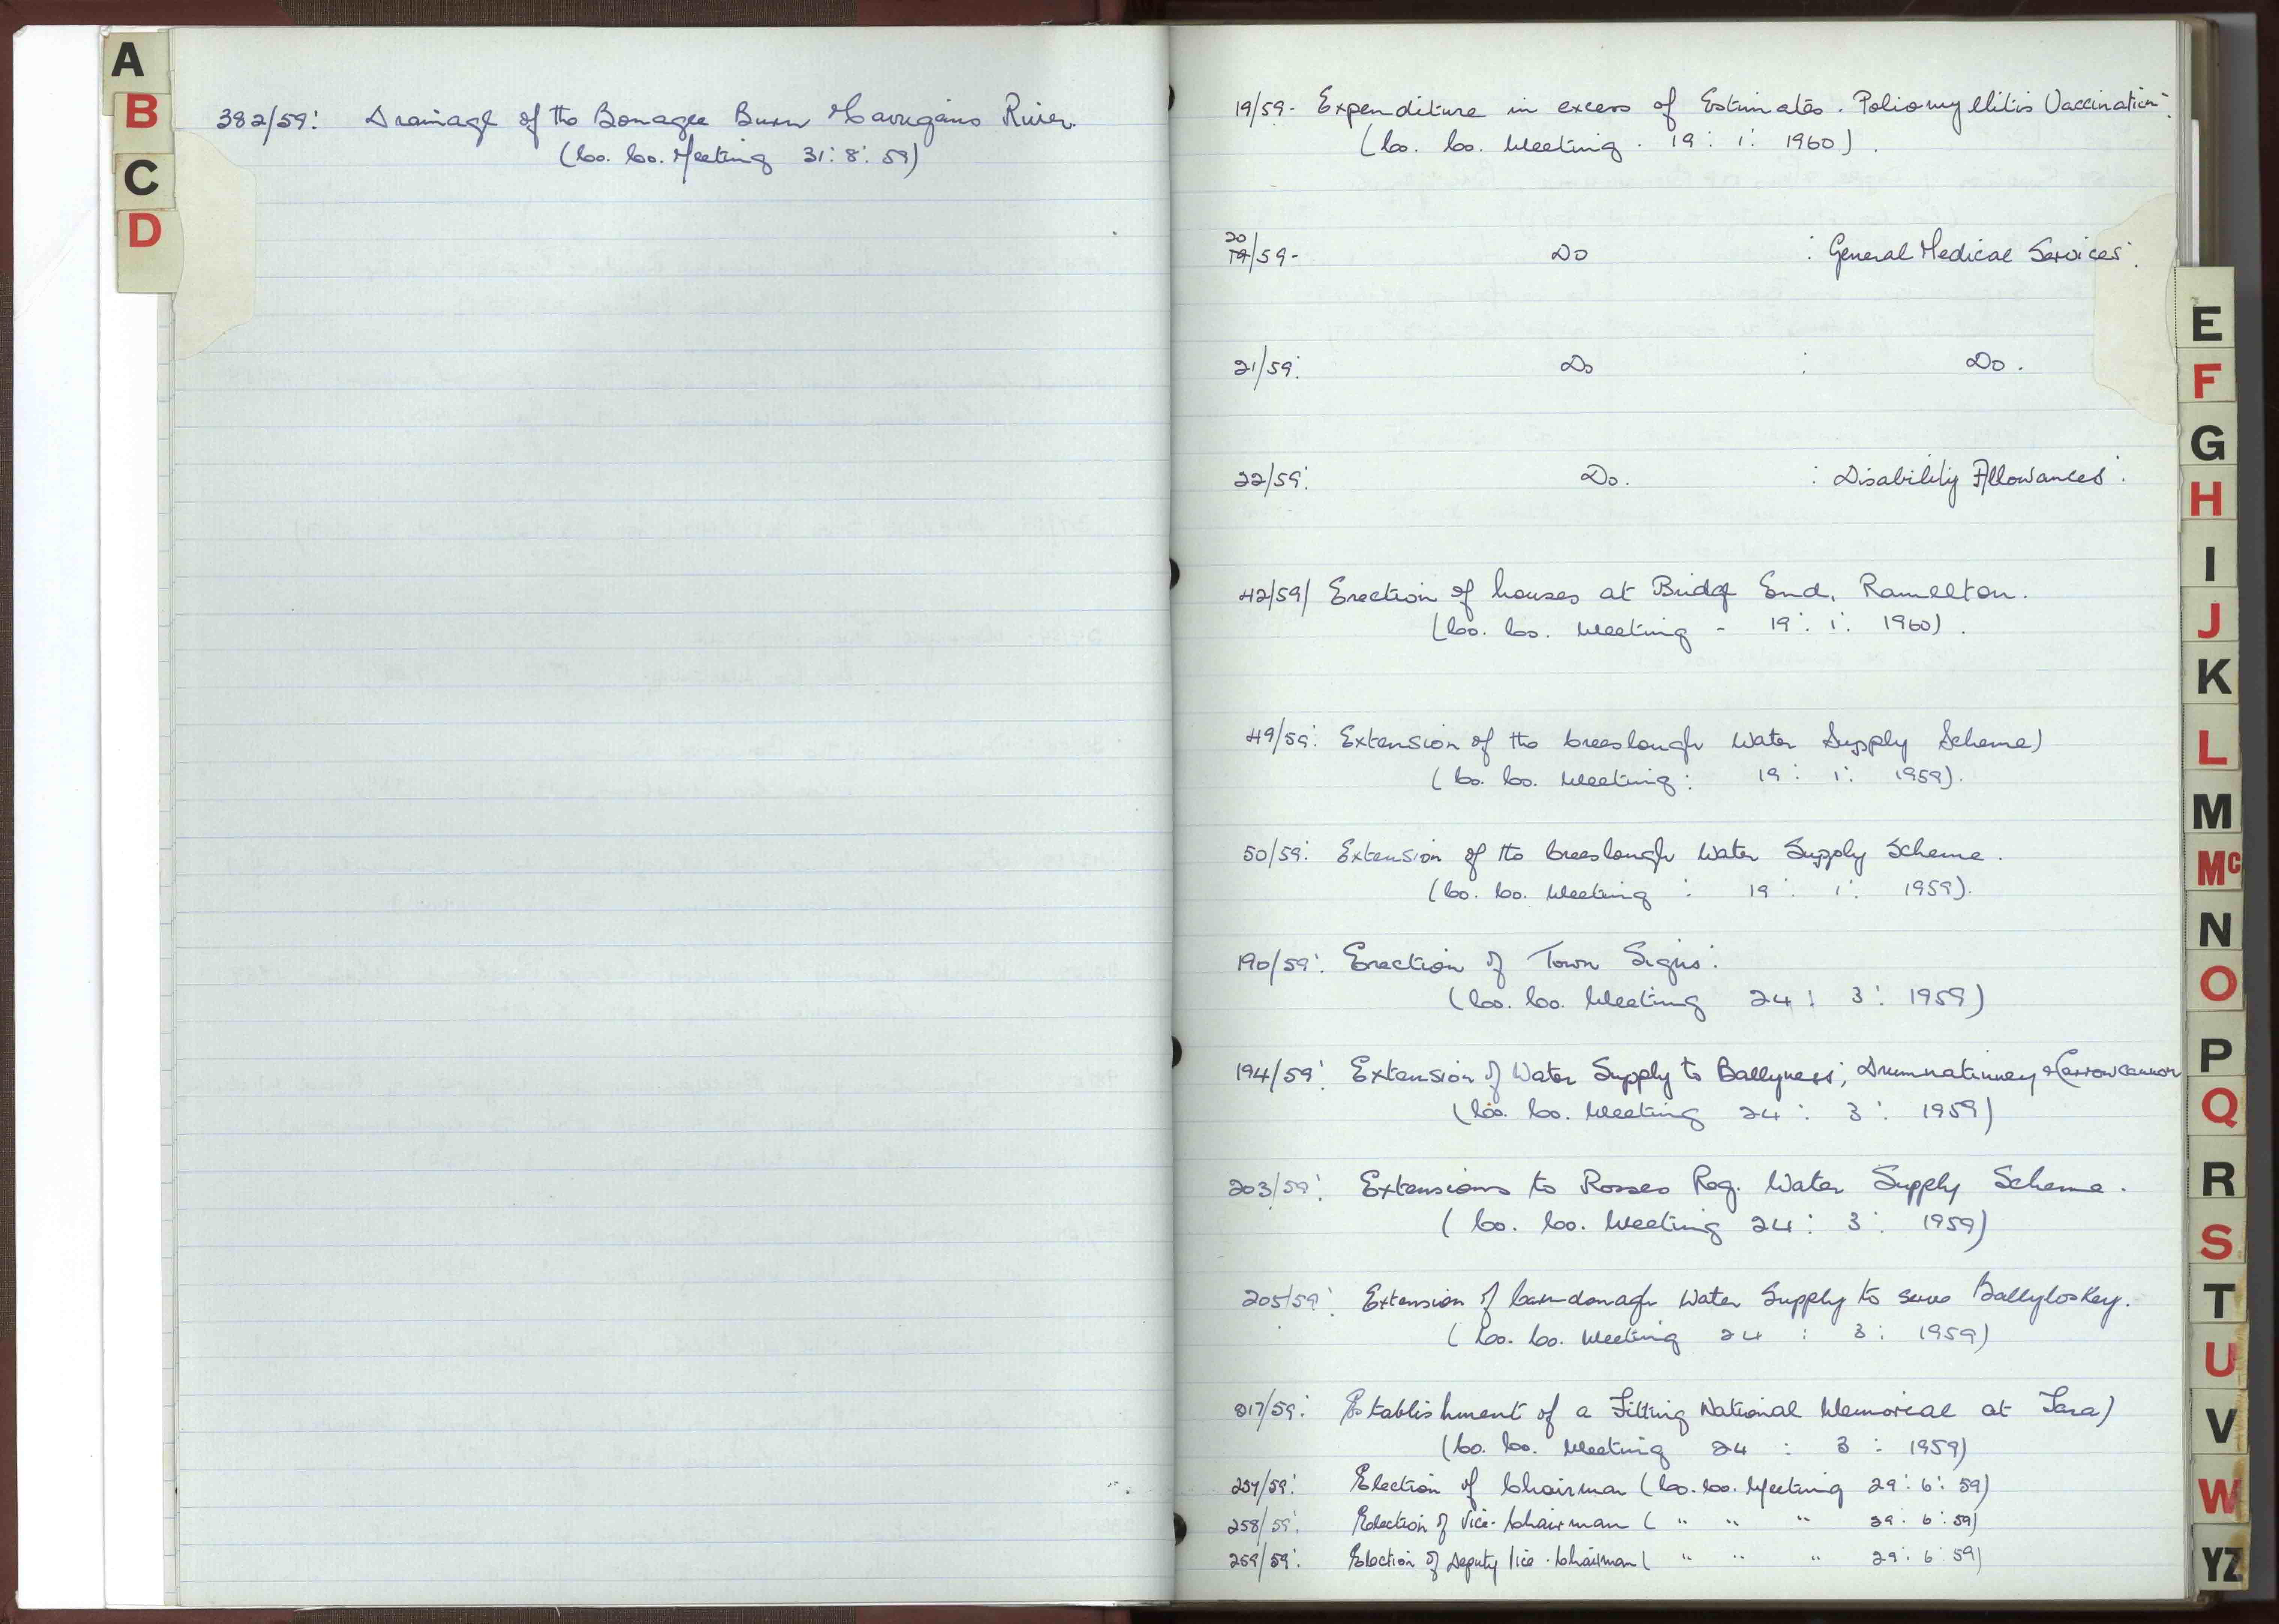 A
B
C
D
382/59: Drainage of the Bonagee Burn & Corrigans River.
(Co. Co. Meeting 31: 8: 59)
19/59- Expenditure in excess of Estimates. Poliomyelitis Vaccination.
(Co. Co. Meeting. 19: 1: 1960).
20
19/59- Do : General Medical Services.
21/59: Do : Do.
22/59: Do. : Disability Allowances.
42/59/ Erection of houses at Bridge End, Ramelton.
(Co. Co. Meeting - 19: 1: 1960).
49/59: Extension of the Creeslough Water Supply Scheme)
(Co. Co. Meeting: 19: 1: 1959).
50/59: Extension of the Creeslough Water Supply Scheme.
(Co. Co. Meeting: 19: 1: 1959).
190/59: Erection of Town Signs.
(Co. Co. Meeting 24: 3: 1959)
194/59: Extension of Water Supply to Ballyness; Drumnatinney & Carrowcannon
(Co. Co. Meeting 24: 3: 1959)
203/59: Extensions to Rosses Reg. Water Supply Scheme.
(Co. Co. Meeting 24: 3: 1959)
205/59: Extension of Carndonagh Water Supply to serve Ballyloskey.
(Co. Co. Meeting 24: 3: 1959)
217/59: Establishment of a Fitting National Memorial at Tara)
(Co. Co. Meeting 24: 3: 1959)
257/59: Election of Chairman (Co. Co. Meeting 29: 6: 59)
258/59: Election of Vice-Chairman ( " " " 29: 6: 59)
259/59: Election of Deputy Vice-Chairman ( " " " 29: 6: 59)
E
F
G
H
I
J
K
L
M
Mc
N
O
P
Q
R
S
T
U
V
W
YZ